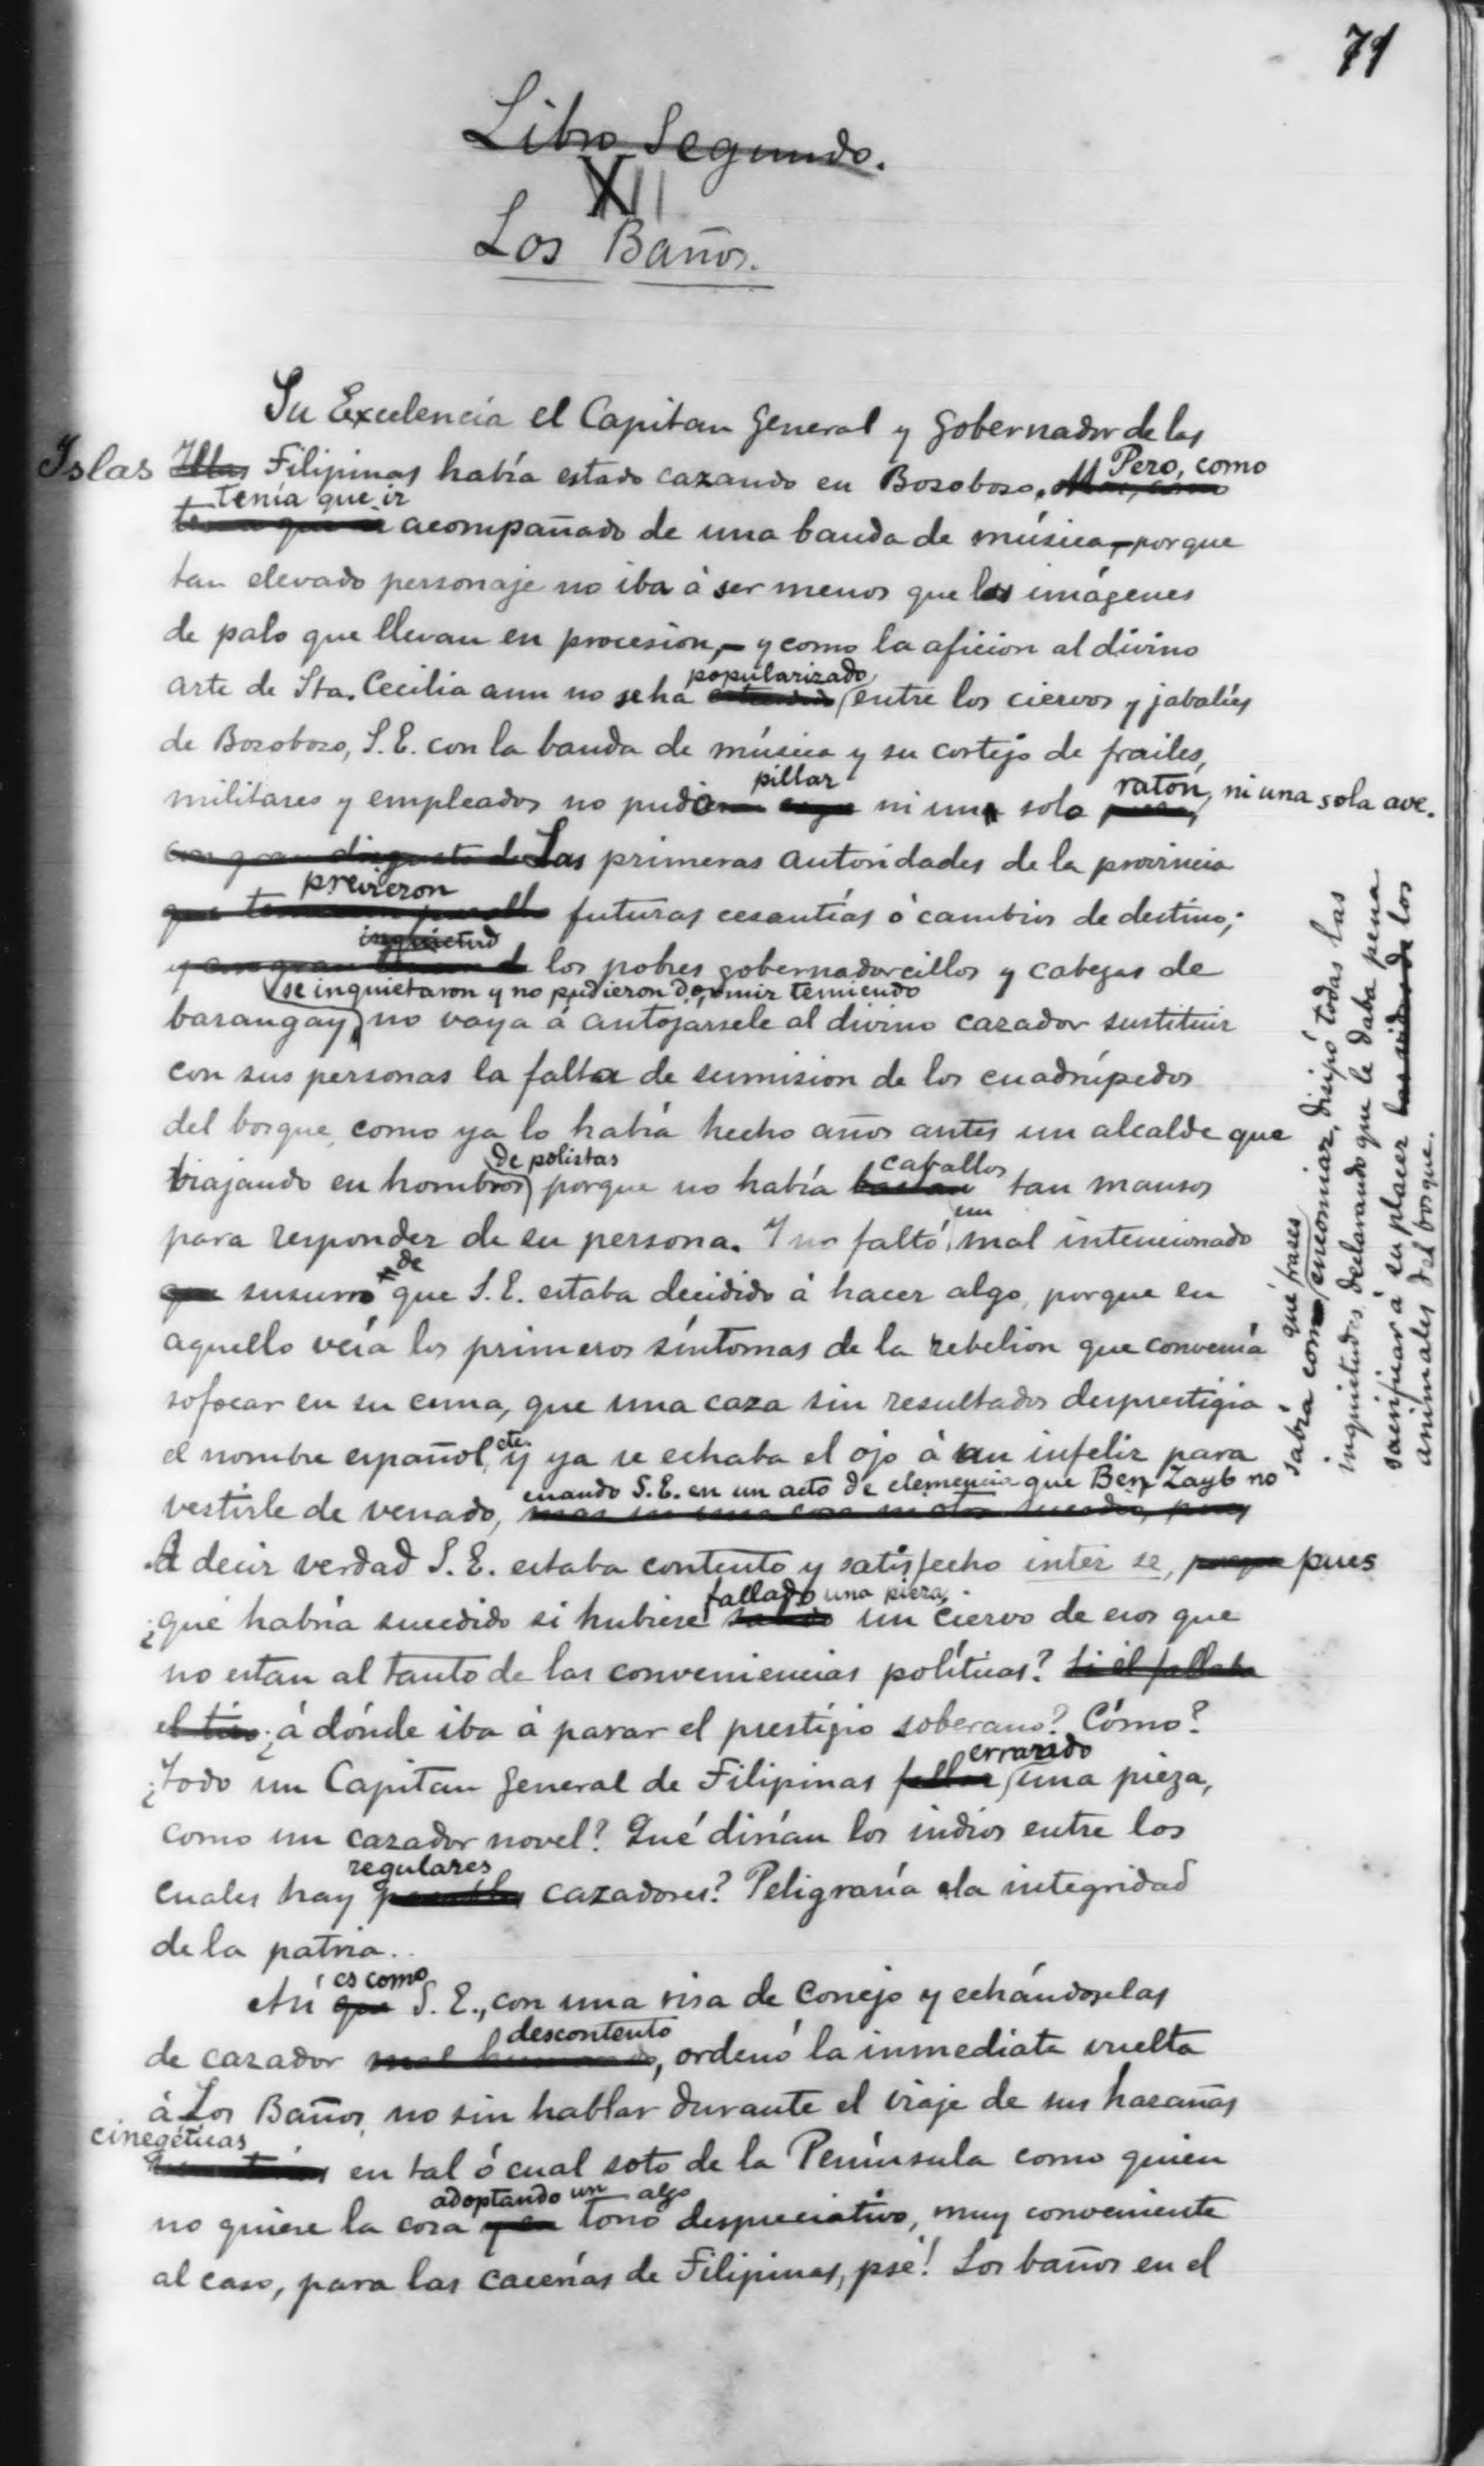 71
Libro Segundo.
XII
Los Baños.
Su Excelencia el Capitan General y Gobernador de las
Islas Filipinas había estado cazando en Bosoboso. Pero, como
tenía que ir
acompañado de una banda de música,-porque
tan elevado personaje no iba á ser menos que las imágenes
de palo que llevan en procesion,- y como la aficion al divino
popularizado
arte de Sta. Cecilia aun no se ha entre los ciervos y jabalíes
de Bosoboso, S. E. con la banda de música y su cortejo de frailes,
pillar ratón, ni una sola ave.
militares y empleados no pudo ni un solo
Las primeras autoridades de la provincia
previeron
futuras cesantías ó cambios de destino;
inquietud
los pobres gobernadorcillos y cabezas de
se inquietaron y no pudieron dormir temiendo
barangay no vaya á antojársele al divino cazador sustituir
con sus personas la falta de sumision de los cuadrúpedos
del bosque, como ya lo había hecho años antes un alcalde que
de polistas caballos
viajando en hombros porque no había tan mansos
un
para responder de su persona. Y no faltó mal intencionado
de
que susurró que S. E. estaba decidido á hacer algo, porque en
aquello veía los primeros síntomas de la rebelion que convenía
sofocar en su cuna, que una caza sin resultados desprestigia
el nombre español, etc. y ya se echaba el ojo á un infeliz para
cuando S. E. en un acto de clemencia que Ben Zayb no
vestirle de venado,
sabía con qué frases encomiar, disipó todas las
inquietudes, declarando que le daba pena
sacrificar á su placer los
animales del bosque.
A decir verdad S. E. estaba contento y satisfecho inter se, pues
fallado una pieza,
¿qué habría sucedido si hubiese un ciervo de esos que
no estan al tanto de las conveniencias políticas? Si él fallaba
el tiro ¿á dónde iba á parar el prestigio soberano? Cómo?
errando
¿Todo un Capitan General de Filipinas fallar una pieza,
como un cazador novel? Qué dirían los indios entre los
regulares
cuales hay cazadores? Peligraría la integridad
de la patria..
es como
Así que S. E., con una risa de conejo y echándoselas
descontento
de cazador , ordenó la inmediata vuelta
á Los Baños, no sin hablar durante el viaje de sus hazañas
cinegéticas
en tal ó cual soto de la Península como quien
adoptando un algo
no quiere la cosa y en tono despreciativo, muy conveniente
al caso, para las cacerías de Filipinas, psé! Los baños en el